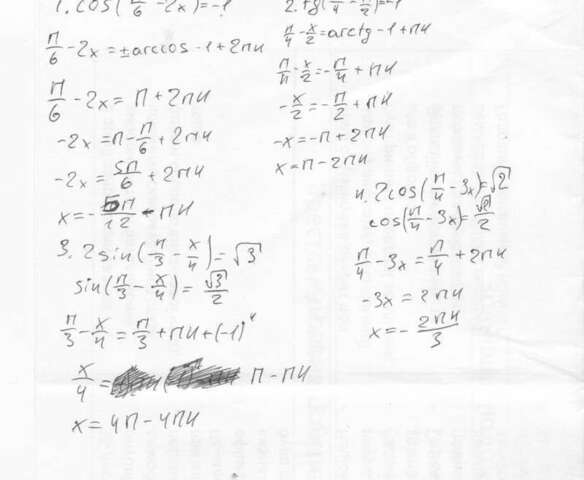 1. cos(π/6 - 2x) = -1
π/6 - 2x = ±arccos -1 + 2πn
π/6 - 2x = π + 2πn
-2x = π - π/6 + 2πn
-2x = 5π/6 + 2πn
x = -5π/12 - πn
2. tg(π/4 - x/2) = -1
π/4 - x/2 = arctg -1 + πn
π/4 - x/2 = -π/4 + πn
-x/2 = -π/2 + πn
-x = -π + 2πn
x = π - 2πn
3. 2sin(π/3 - x/4) = √3
sin(π/3 - x/4) = √3/2
π/3 - x/4 = π/3 + πn + (-1)ⁿ
x/4 = π - πn
x = 4π - 4πn
4. 2cos(π/4 - 3x) = √2
cos(π/4 - 3x) = √2/2
π/4 - 3x = π/4 + 2πn
-3x = 2πn
x = -2πn/3